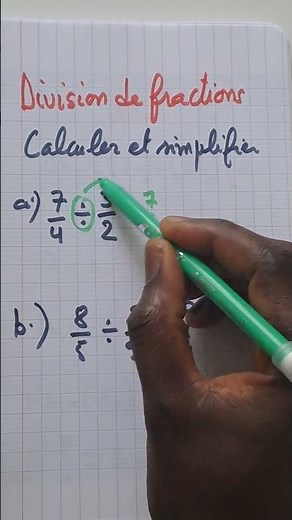 Division de fractions
Calculer et simplifier
a.) 7/4 ÷ 3/2 7
b.) 8/5 ÷